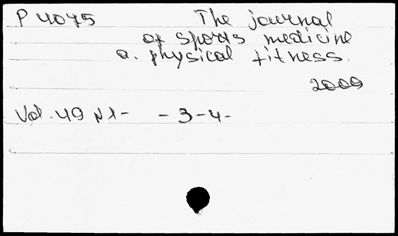 P 4075 The journal
of sports medicine
a. physical fitness.
2009
Vol. 49 N1- -3-4-